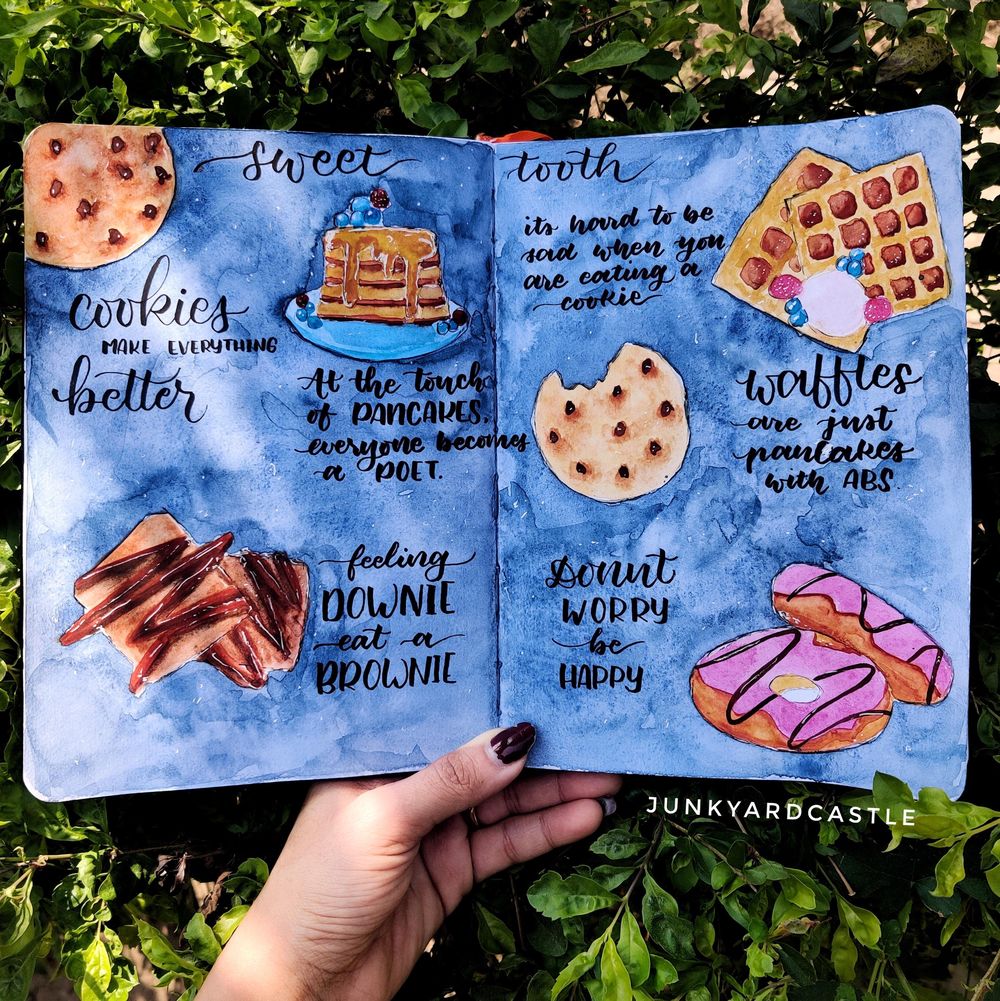 sweet tooth
cookies
MAKE EVERYTHING
better
At the touch
of PANCAKES,
everyone becomes
a POET.
feeling
DOWNIE
eat a
BROWNIE
its hard to be
sad when you
are eating a
cookie
waffles
are just
pancakes
with ABS.
Donut
WORRY
be
HAPPY
JUNKYARDCASTLE